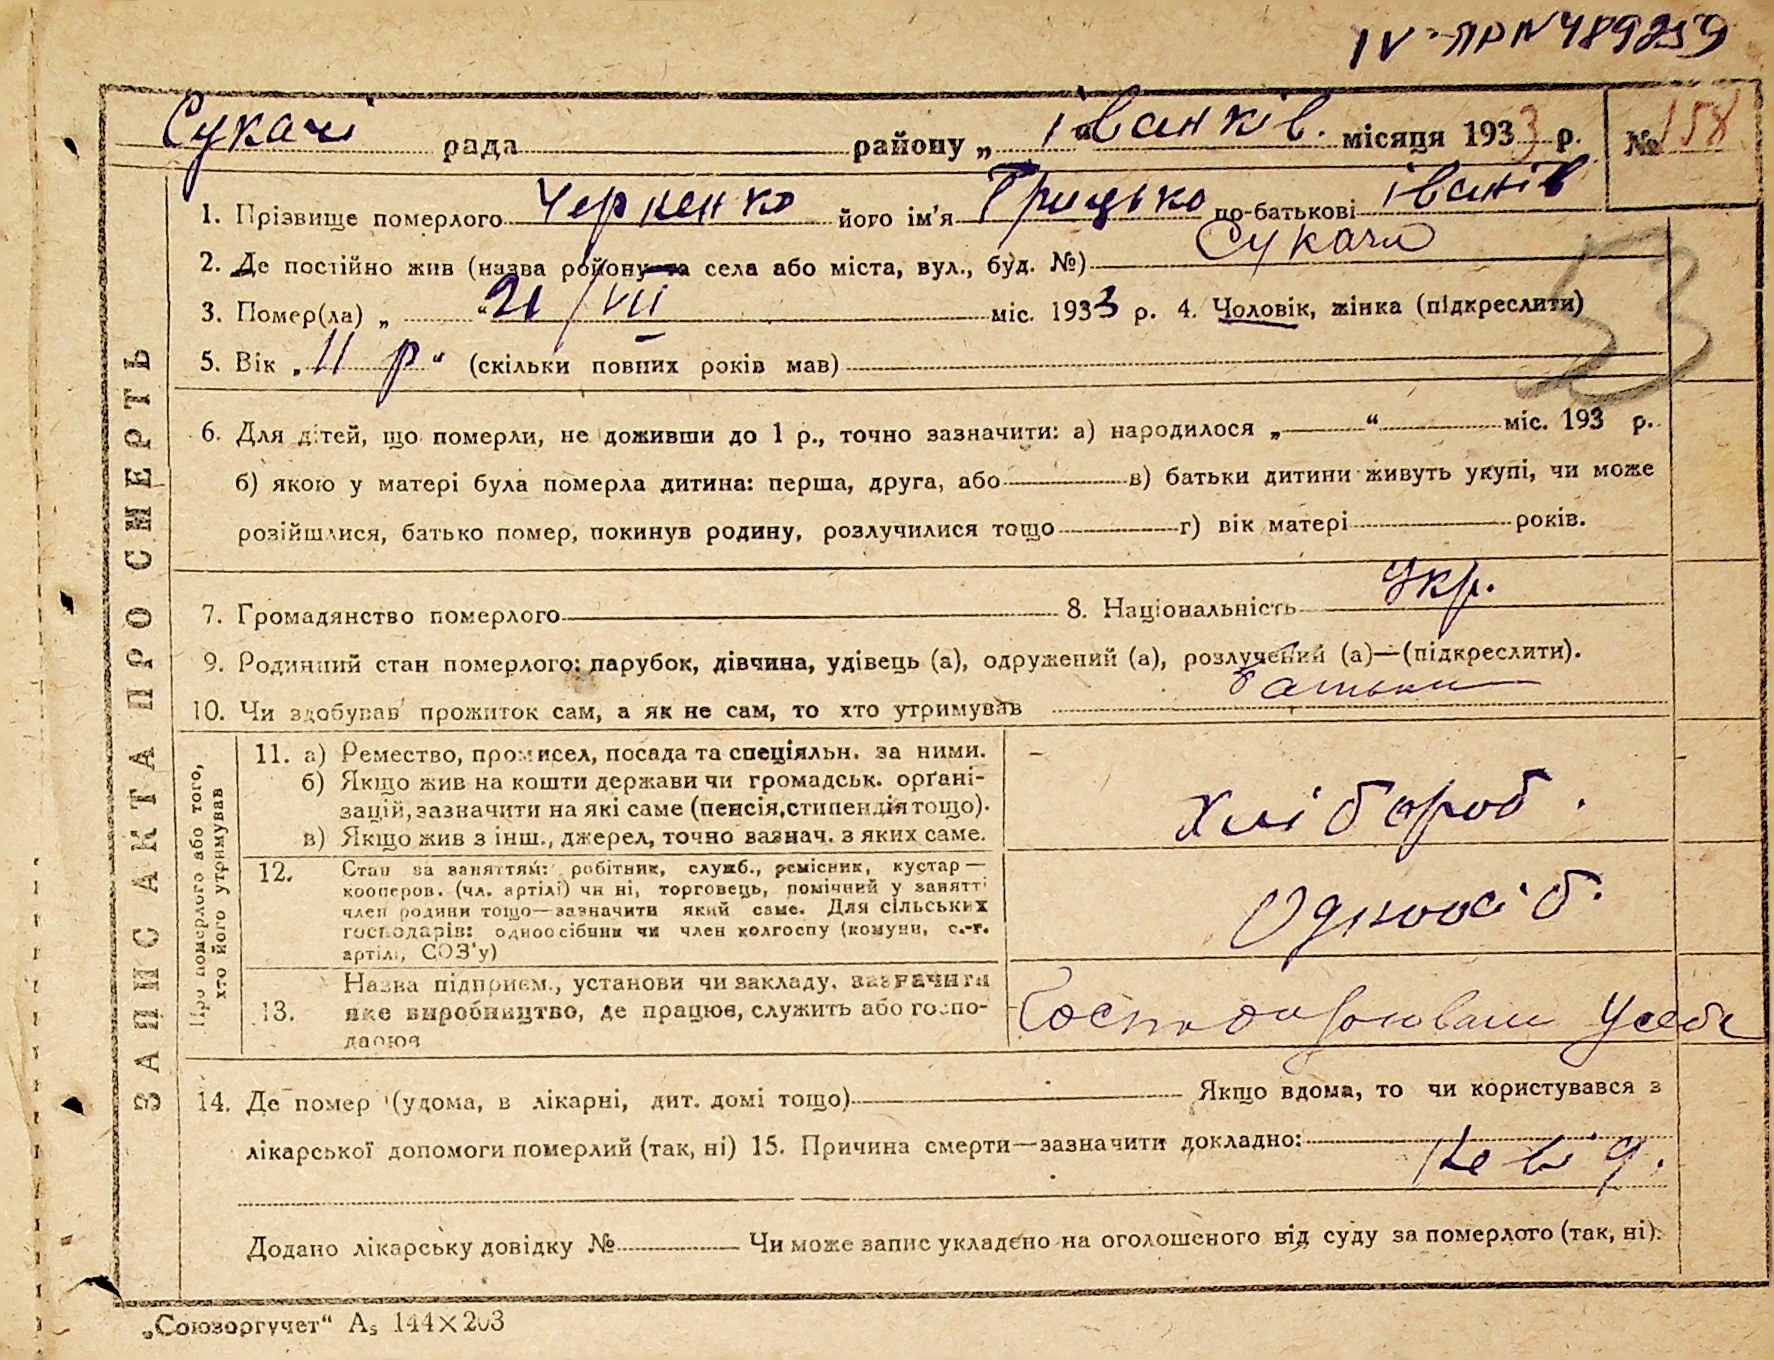 IV-ПР N 489259
Сукачі рада району „ Іванків. “ місяця 1933 р. № 158
1. Прізвище померлого Черненко його ім'я Грицько по-батькові Іванів
2. Де постійно жив (назва району та села або міста, вул., буд. №) Сукачи
3. Помер(ла) „ “ 21/VII міс. 1933 р. 4. Чоловік, жінка (підкреслити)
5. Вік „ 11 р “ (скільки повних років мав)
53
6. Для дітей, що померли, не доживши до 1 р., точно зазначити: а) народилося „ “ міс. 193 р.
б) якою у матері була померла дитина: перша, друга, або в) батьки дитини живуть укупі, чи може
розійшлися, батько помер, покинув родину, розлучилися тощо г) вік матері років.
7. Громадянство померлого 8. Національність Укр.
9. Родинний стан померлого: парубок, дівчина, удівець (а), одружений (а), розлучений (а)—(підкреслити).
10. Чи здобував прожиток сам, а як не сам, то хто утримував батьки
ЗАПИС АКТА ПРО СМЕРТЬ
Про померлого або того,
хто його утримував
11. а) Ремество, промисел, посада та спеціяльн. за ними. –
б) Якщо жив на кошти держави чи громадськ. орґані-
зацій, зазначити на які саме (пенсія, стипендія тощо).
хлібороб.
в) Якщо жив з інш., джерел, точно вазнач. з яких саме.
12. Стан за заняттям: робітник, служб., ремісник, кустар—
кооперов. (чл. артілі) чи ні, торговець, помічний у занятті
член родини тощо—зазначити який саме. Для сільських
господарів: одноосібник чи член колгоспу (комуни, с.-г.
артілі, СОЗ'у)
Одноосіб.
13. Назва підприєм., установи чи закладу, зазначити
яке виробництво, де працює, служить або госпо-
дарює
Господарювали у себе
14. Де помер (удома, в лікарні, дит. домі тощо) Якщо вдома, то чи користувався з
лікарської допомоги померлий (так, ні) 15. Причина смерти—зазначити докладно:
Невід.
Додано лікарську довідку № Чи може запис укладено на оголошеного від суду за померлого (так, ні).
„Союзоргучет“ А₅ 144×203